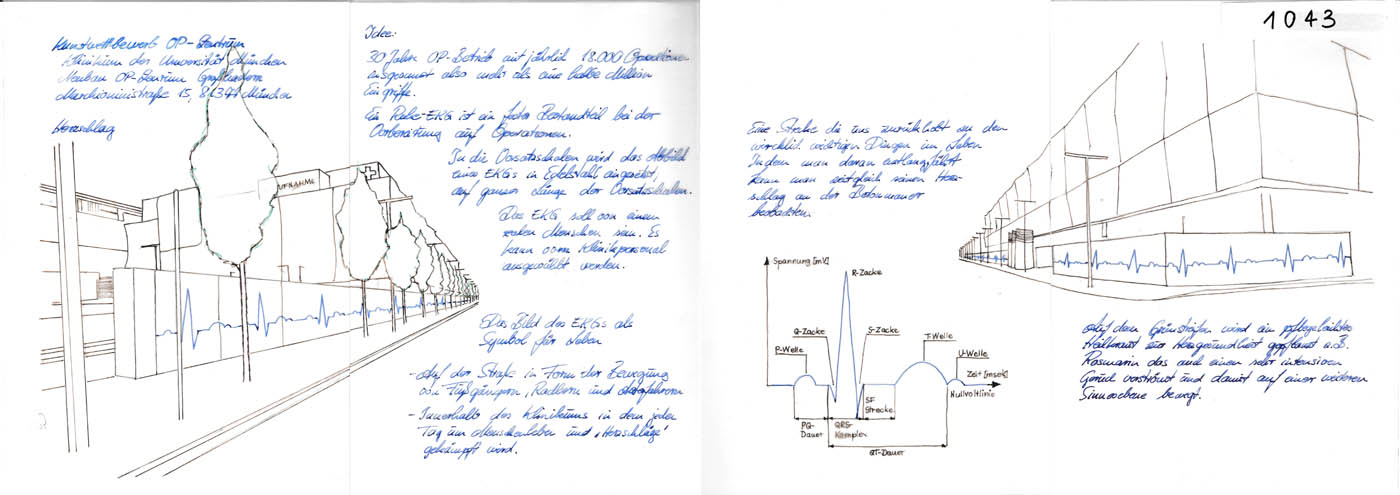 Kunstwettbewerb OP-Zentrum
Klinikum der Universität München
Neubau OP-Zentrum Großhadern
Marchioninistraße 15, 81377 München
Herzschlag
UFNAHME
Idee:
30 Jahre OP-Betrieb mit jährlich 18.000 Operationen
insgesamt also mehr als eine halbe Million
Eingriffe.
Ein Ruhe-EKG ist ein fester Bestandteil bei der
Vorbereitung auf Operationen.
In die Vorsatzschalen wird das Abbild
eines EKGs in Edelstahl eingesetzt,
auf ganzer Länge der Vorsatzschalen.
Das EKG soll von einem
realen Menschen sein. Es
kann vom Klinikpersonal
ausgewählt werden.
Das Bild des EKGs als
Symbol für Leben
- Auf der Straße in Form der Bewegung
von Fußgängern, Radlern und Autofahrern
- Innerhalb des Klinikums in dem jeden
Tag um Menschenleben und "Herzschläge"
gekämpft wird.
1043
Eine Strecke die uns zurückholt zu den
wirklich wichtigen Dingen im Leben
In dem man daran entlangfährt
kann man zeitgleich seinen Herz-
schlag an der Betonmauer
beobachten.
Spannung [mV]
R-Zacke
Q-Zacke
S-Zacke
P-Welle
T-Welle
U-Welle
Zeit [msek]
Nullvoltlinie
SF
Strecke
PQ-
Dauer
QRS-
Komplex
QT-Dauer
Auf dem Grünstreifen wird ein pflegeleichtes
Heilkraut zur Herzgesundheit gepflanzt z.B.
Rosmarin das auch einen sehr intensiven
Geruch verströmt und damit auf einer weiteren
Sinnesebene bewegt.